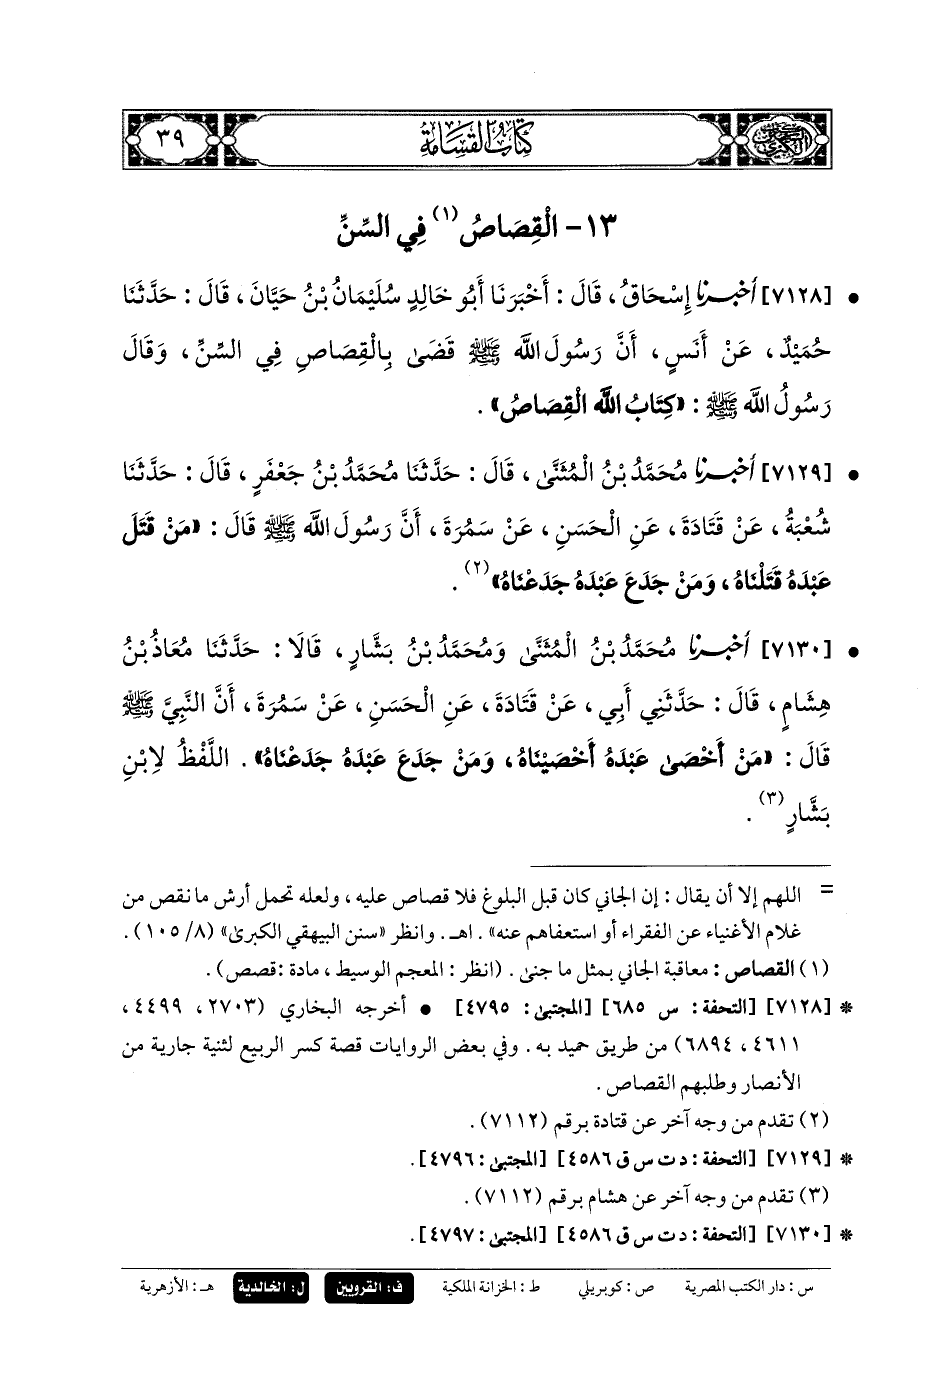 السنن الكبرى
كتاب القسامة
٣٩
١٣- الْقِصَاصُ (١) فِي السِّنِّ
• [٧١٢٨] أخبرنا إِسْحَاقُ، قَالَ: أَخْبَرَنَا أَبُو خَالِدٍ سُلَيْمَانُ بْنُ حَيَّانَ، قَالَ: حَدَّثَنَا
حُمَيْدٌ، عَنْ أَنَسٍ، أَنَّ رَسُولَ اللَّه ﷺ قَضَىٰ بِالْقِصَاصِ فِي السِّنِّ، وَقَالَ
رَسُولُ اللَّه ﷺ: «كِتَابُ اللَّه الْقِصَاصُ».
• [٧١٢٩] أخبرنا مُحَمَّدُ بْنُ الْمُثَنَّىٰ، قَالَ: حَدَّثَنَا مُحَمَّدُ بْنُ جَعْفَرٍ، قَالَ: حَدَّثَنَا
شُعْبَةُ، عَنْ قَتَادَةَ، عَنِ الْحَسَنِ، عَنْ سَمُرَةَ، أَنَّ رَسُولَ اللَّه ﷺ قَالَ: «مَنْ قَتَلَ
عَبْدَهُ قَتَلْنَاهُ، وَمَنْ جَدَعَ عَبْدَهُ جَدَعْنَاهُ»(٢).
• [٧١٣٠] أخبرنا مُحَمَّدُ بْنُ الْمُثَنَّىٰ وَمُحَمَّدُ بْنُ بَشَّارٍ، قَالَا: حَدَّثَنَا مُعَاذُ بْنُ
هِشَامٍ، قَالَ: حَدَّثَنِي أَبِي، عَنْ قَتَادَةَ، عَنِ الْحَسَنِ، عَنْ سَمُرَةَ، أَنَّ النَّبِيَّ ﷺ
قَالَ: «مَنْ أَخْصَىٰ عَبْدَهُ أَخْصَيْنَاهُ، وَمَنْ جَدَعَ عَبْدَهُ جَدَعْنَاهُ». اللَّفْظُ لِابْنِ
بَشَّارٍ(٣).
= اللهم إلا أن يقال: إن الجاني كان قبل البلوغ فلا قصاص عليه، ولعله تحمل أرش ما نقص من
غلام الأغنياء عن الفقراء أو استعفاهم عنه». اهـ. وانظر «سنن البيهقي الكبرى» (٨/ ١٠٥).
(١) القصاص: معاقبة الجاني بمثل ما جنى. (انظر: المعجم الوسيط، مادة: قصص).
* [٧١٢٨] [التحفة: س ٦٨٥] [المجتبى: ٤٧٩٥] • أخرجه البخاري (٢٧٠٣، ٤٤٩٩،
٤٦١١، ٦٨٩٤) من طريق حميد به. وفي بعض الروايات قصة كسر الربيع لثنية جارية من
الأنصار وطلبهم القصاص.
(٢) تقدم من وجه آخر عن قتادة برقم (٧١١٢).
* [٧١٢٩] [التحفة: د ت س ق ٤٥٨٦] [المجتبى: ٤٧٩٦].
(٣) تقدم من وجه آخر عن هشام برقم (٧١١٢).
* [٧١٣٠] [التحفة: د ت س ق ٤٥٨٦] [المجتبى: ٤٧٩٧].
س: دار الكتب المصرية ص: كوبريلي ط: الخزانة الملكية ف: القرويين ل: الخالدية هـ: الأزهرية